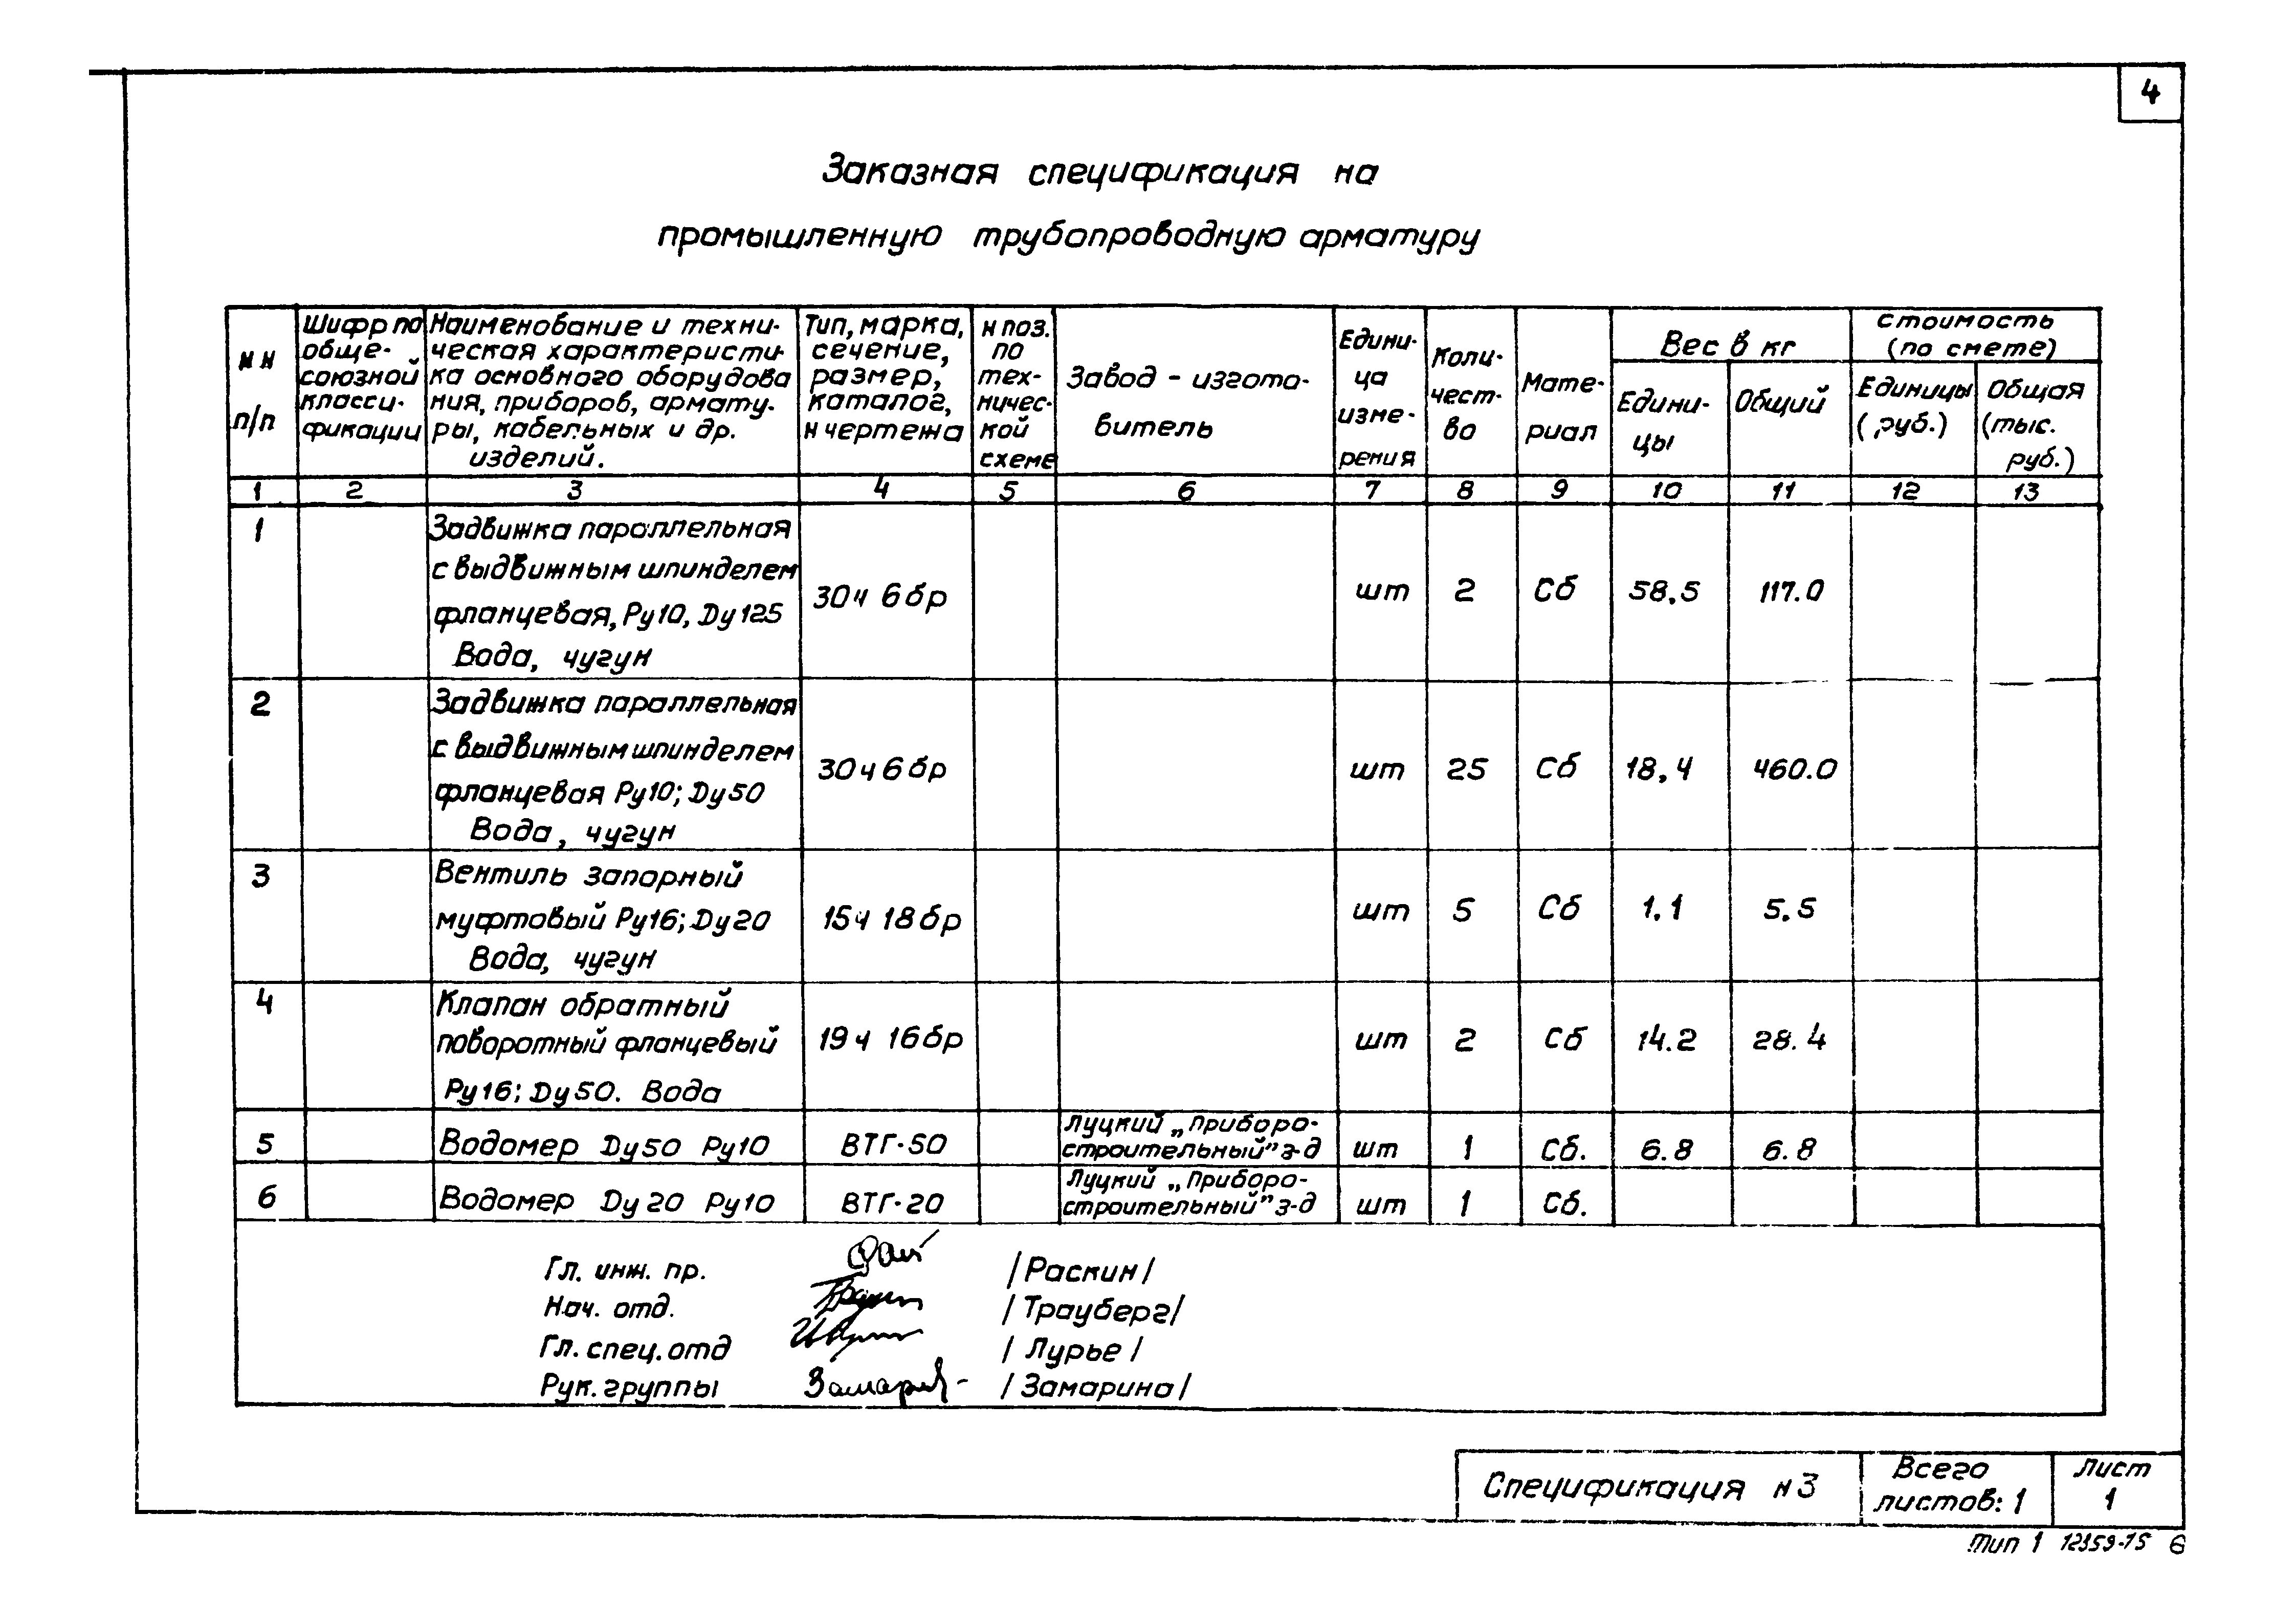 4
Заказная спецификация на
промышленную трубопроводную арматуру
нн
п/п
Шифр по
обще-
союзной
класси-
фикации
Наименование и техни-
ческая характеристи-
ка основного оборудова
ния, приборов, армату-
ры, кабельных и др.
изделий.
Тип, марка,
сечение,
размер,
каталог,
н чертежа
н поз.
по
тех-
ничес-
кой
схеме
Завод - изгото-
витель
Едини-
ца
изме-
рения
Коли-
чест-
во
Мате-
риал
Вес в кг
Едини-
цы
Общий
стоимость
(по смете)
Единицы
(руб.)
Общая
(тыс.
руб.)
1 2 3 4 5 6 7 8 9 10 11 12 13
1
Задвижка параллельная
с выдвижным шпинделем
фланцевая, Ру10, Dу125
Вода, чугун
30ч 6бр шт 2 Сб 58.5 117.0
2
Задвижка параллельная
с выдвижным шпинделем
фланцевая Ру10; Dу50
Вода, чугун
30ч6бр шт 25 Сб 18.4 460.0
3
Вентиль запорный
муфтовый Ру16; Dу20
Вода, чугун
15ч 18бр шт 5 Сб 1.1 5.5
4
Клапан обратный
поворотный фланцевый
Ру16; Dу50. Вода
19ч 16бр шт 2 Сб 14.2 28.4
5 Водомер Dу50 Ру10 ВТГ-50
Луцкий „Приборо-
строительный" з-д
шт 1 Сб. 6.8 6.8
6 Водомер Dу20 Ру10 ВТГ-20
Луцкий „Приборо-
строительный" з-д
шт 1 Сб.
Гл. инж. пр. /Раскин/
Нач. отд. /Трауберг/
Гл. спец. отд /Лурье/
Рук. группы /Замарина/
Спецификация н3
Всего
листов: 1
Лист
1
Тип 1 12359-15 6